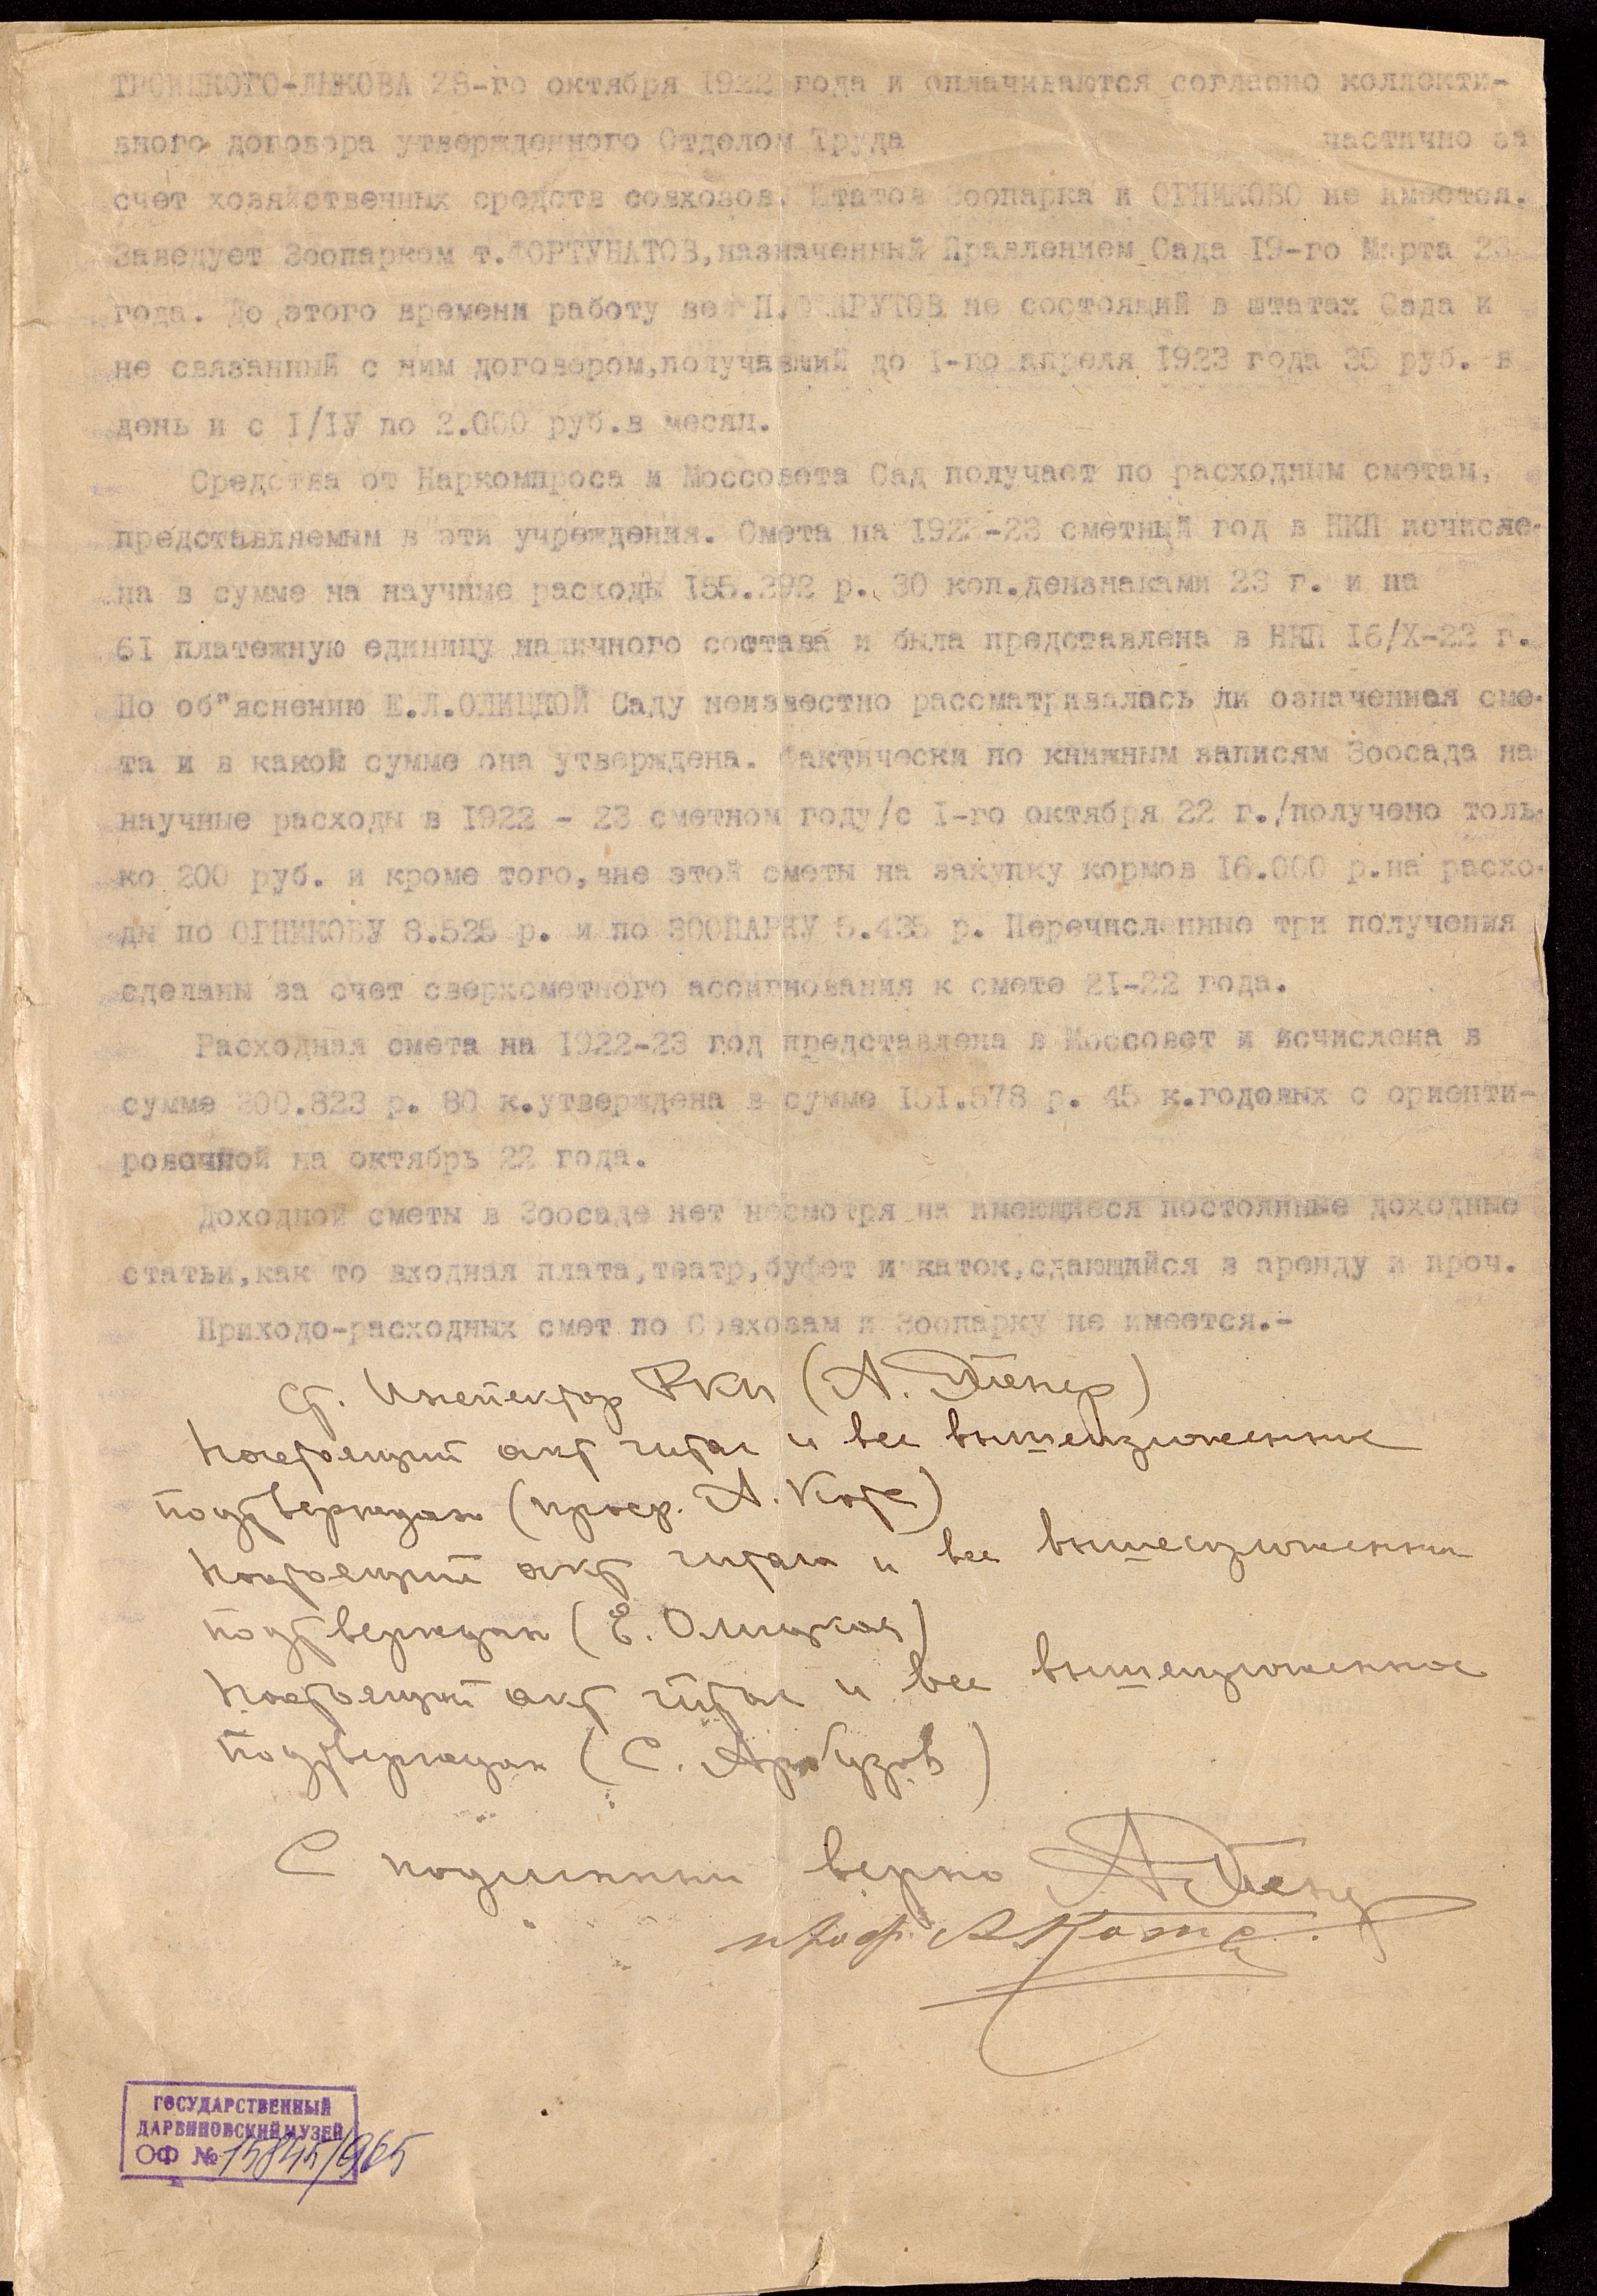 ТРОИЦКОГО-ЛЫКОВА 28-го октября 1922 года и оплачиваются согласно коллекти-
вного договора утвержденного Отделом Труда частично за
счет хозяйственных средств совхозов. Штатов Зоопарка и ОГНИКОВО не имеется.
Заведует Зоопарком т.ФОРТУНАТОВ,назначенный Правлением Сада 19-го Марта 23
года. До этого времени работу вел не состоящий в штатах Сада и
не связанный с ним договором,получавший до I-го апреля 1923 года 35 руб. в
день и с I/IУ по 2.000 руб.в месяц.
Средства от Наркомпроса и Моссовета Сад получает по расходным сметам,
представляемым в эти учреждения. Смета на 1922-23 сметный год в НКП исчисле-
на в сумме на научные расходы 155.292 р. 30 коп.дензнаками 23 г. и на
61 платежную единицу наличного состава и была представлена в НКП 16/X-22 г.
По об"яснению Е.Л.ОЛИЦКОЙ Саду неизвестно рассматривалась ли означенная сме-
та и в какой сумме она утверждена. Фактически по книжным записям Зоосада на
научные расходы в 1922 - 23 сметном году/с I-го октября 22 г./получено толь-
ко 200 руб. и кроме того,вне этой сметы на закупку кормов 16.000 р.на расхо-
ды по ОГНИКОВУ 8.525 р. и по ЗООПАРКУ 5.425 р. Перечисленные три получения
сделаны за счет сверхсметного ассигнования к смете 21-22 года.
Расходная смета на 1922-23 год представлена в Моссовет и исчислена в
сумме 300.823 р. 80 к.утверждена в сумме 151.578 р. 45 к.годовых с ориенти-
ровочной на октябрь 22 года.
Доходной сметы в Зоосаде нет несмотря на имеющиеся постоянные доходные
статьи,как то входная плата,театр,буфет и каток,сдающийся в аренду и проч.
Приходо-расходных смет по Совхозам и Зоопарку не имеется.-
Ст. Инспектор РКИ (А.
Настоящий акт читал и все вышеизложенное
подтверждаю (проф. А. Котс)
Настоящий акт читала и все вышеизложенное
подтверждаю (Е. Олицкая)
Настоящий акт читал и все вышеизложенное
подтверждаю (С. Арбузов)
С подлинным верно
проф. А Котс
ГОСУДАРСТВЕННЫЙ
ДАРВИНОВСКИЙ МУЗЕЙ
ОФ № 15845/965